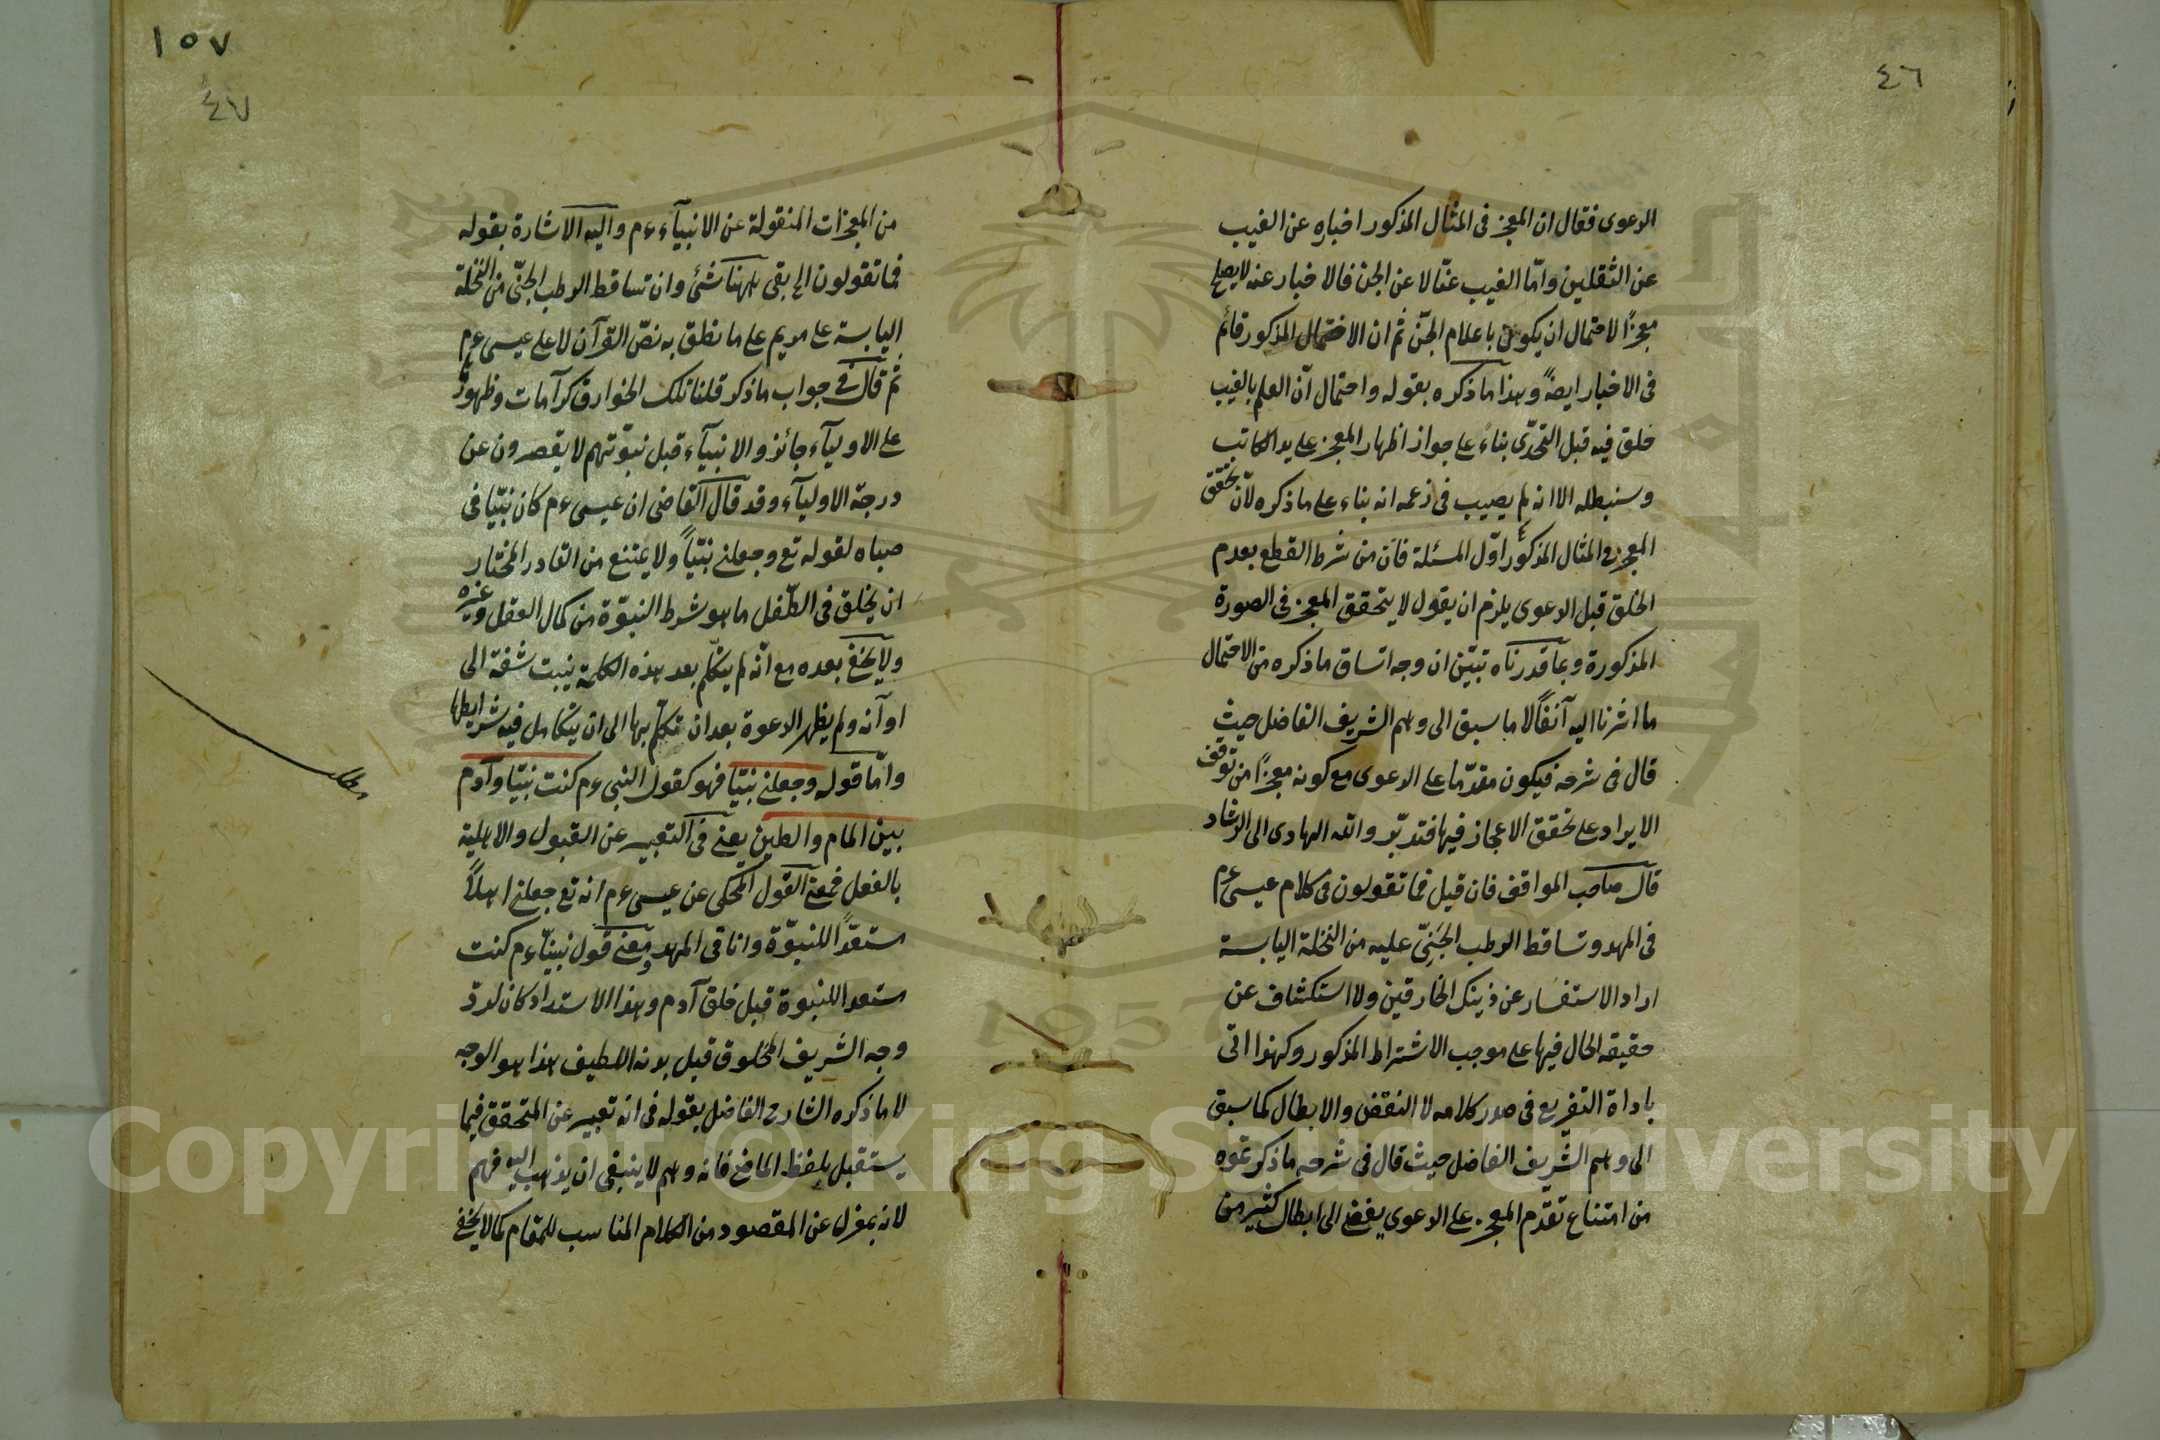 ٤٦
الدعوى فقال ان المعجز فى المثال المذكور اخباره عن الغيب
عن الثقلين وامّا الغيب عنّا لا عن الجن فالاخبار عنه لا يصلح
معجزًا لاحتمال ان يكون باعلام الجنّ ثم ان الاحتمال المذكور قائم
فى الاخبار ايضًا وهذا ما ذكره بقوله واحتمال ان العلم بالغيب
خلق فيه قبل التحدّى بناءً على جواز اظهار المعجز على يد الكاذب
وسنبطله الا انه لم يصيب فى زعمه انه بناء على ما ذكره لأنّ تحقق
المعجز فى المثال المذكور اوّل المسئلة فانّ من شرط القطع بعدم
الخلق قبل الدعوى يلزم ان يقول لا يتحقق المعجز فى الصورة
المذكورة وبما قدرناه تبيّن ان وجه اتساق ما ذكره من الاحتمال
ما اشرنا اليه آنفًا لا ما سبق الى وهم الشريف الفاضل حيث
قال فى شرحه فيكون مقدّما على الدعوى مع كونه معجزًا من توقف
الايراد على تحقق الاعجاز فيها فتدبّر والله الهادى الى الرشاد
قال صاحب المواقف فان قيل فما تقولون فى كلام عيسى ءم
فى المهد وتساقط الرطب الجَنِىّ عليه من النخلة اليابسة
اراد الاستفسار عن ذينك الخارقين ولا استكشاف عن
حقيقه الحال فيها على موجب الاشتراط المذكور وكهذا اتى
باداة التفريع فى صدر كلامه لا النقض والابطال كما سبق
الى وهم الشريف الفاضل حيث قال فى شرحه ما ذكرتموه
من امتناع تقدّم المعجز على الدعوى يفضى الى ابطال كثير من
١٥٧
٤٧
من المعجزات المنقولة عن الانبيآء ءم واليه الاشارة بقوله
فما تقولون الى بقى ههنا شئ وان تساقط الرطب الجنّى من النخلة
اليابسة على مريم على ما نطق به نصّ القرآن لا على عيسى ءم
ثم قال فى جواب ما ذكر قلنا تلك الخوارق كرآمات وظهورها
على الاوليآء جائز والانبيآء قبل نبوّتهم لا يقصرون عن
درجة الاوليآء وقد قال القاضى ان عيسى ءم كان نبيّا فى
صباه لقوله تع وجعلنى نبيّاً ولا يمتنع من القادر المختار
ان يخلق فى الطّفل ما هو شرط النبوّة من كمال العقل وغيره
ولا يخفى بعده مع انّه لم يتكلّم بعد هذه الكلمة ببنت شفة الى
اوانه ولم يظهر الدعوة بعد ان تكلّم بها الى ان يتكامل فيه شرايطها
وامّا قوله وجعلنى نبيّا فهو كقول النبى ءم كنت نبيّا وآدم
بين المام والطين يعنى فى التعبير عن القبول والاهلية
بالفعل فمعنى القول المحكى عن عيسى ءم انه تع جعلنى اهلاً
مستعدًّا للنبوّة وانا فى المهد ومعنى قول نبيّنا ءم كنت
مستعدا للنبوة قبل خلق آدم وهذا الاستعداد كان لدرّ
وجه الشريف المخلوق قبل بدنه اللطيف هذا هو الوجه
لا ما ذكره الشارح الفاضل بقوله فى انه تعبير عن المتحقق فيما
يستقبل بلفظ الماضى فانه وهم لا ينبغى ان يذهب اليه فهم
لانه بمعزل عن المقصود من الكلام المناسب للمقام كما لا يخفى
مطلب
Copyright © King Saud University
1957